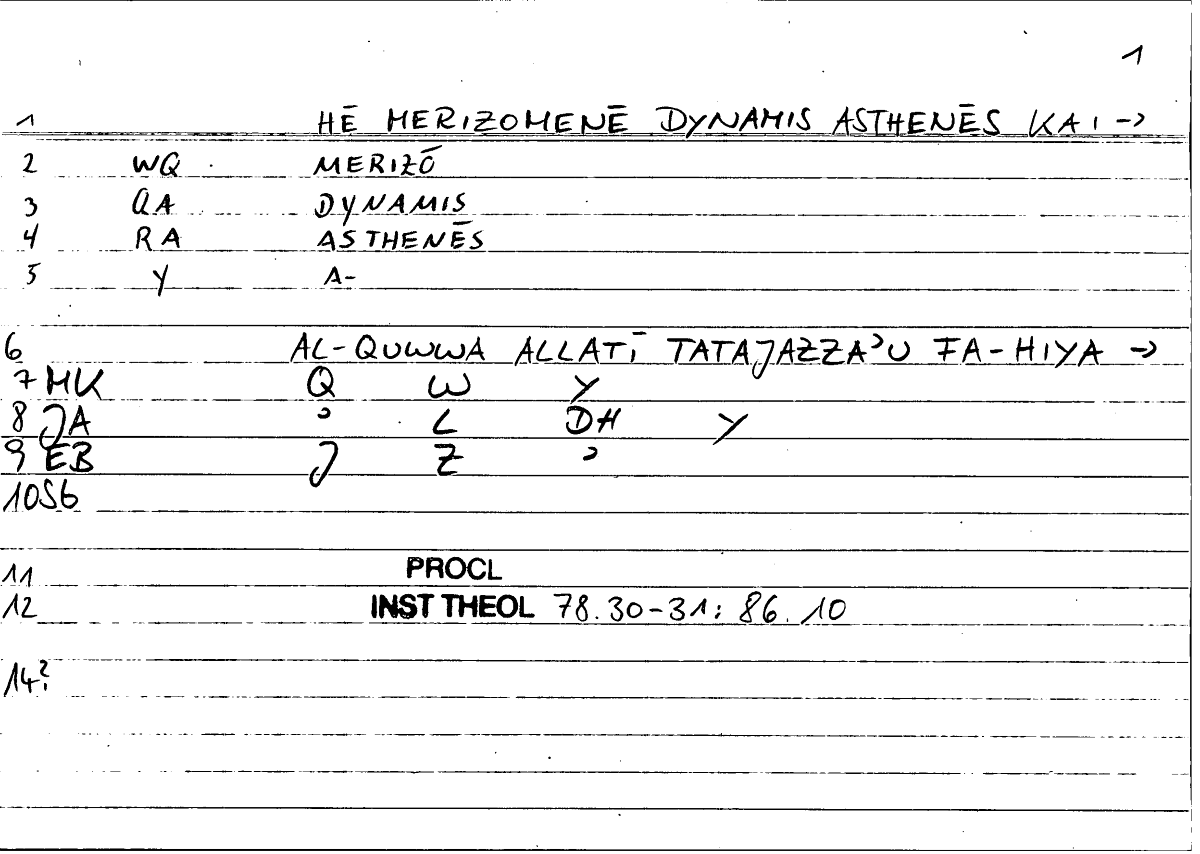 1
1 HĒ MERIZOMENĒ DYNAMIS ASTHENĒS KAI →
2 WQ MERIZŌ
3 QA DYNAMIS
4 RA ASTHENĒS
5 Y A-
6 AL-QUWWA ALLATĪ TATAJAZZAʾU FA-HIYA →
7 MK Q W Y
8 JA ʾ L DH Y
9 EB J Z ʾ
10 SB
11 PROCL
12 INST THEOL 78.30-31; 86.10
14?